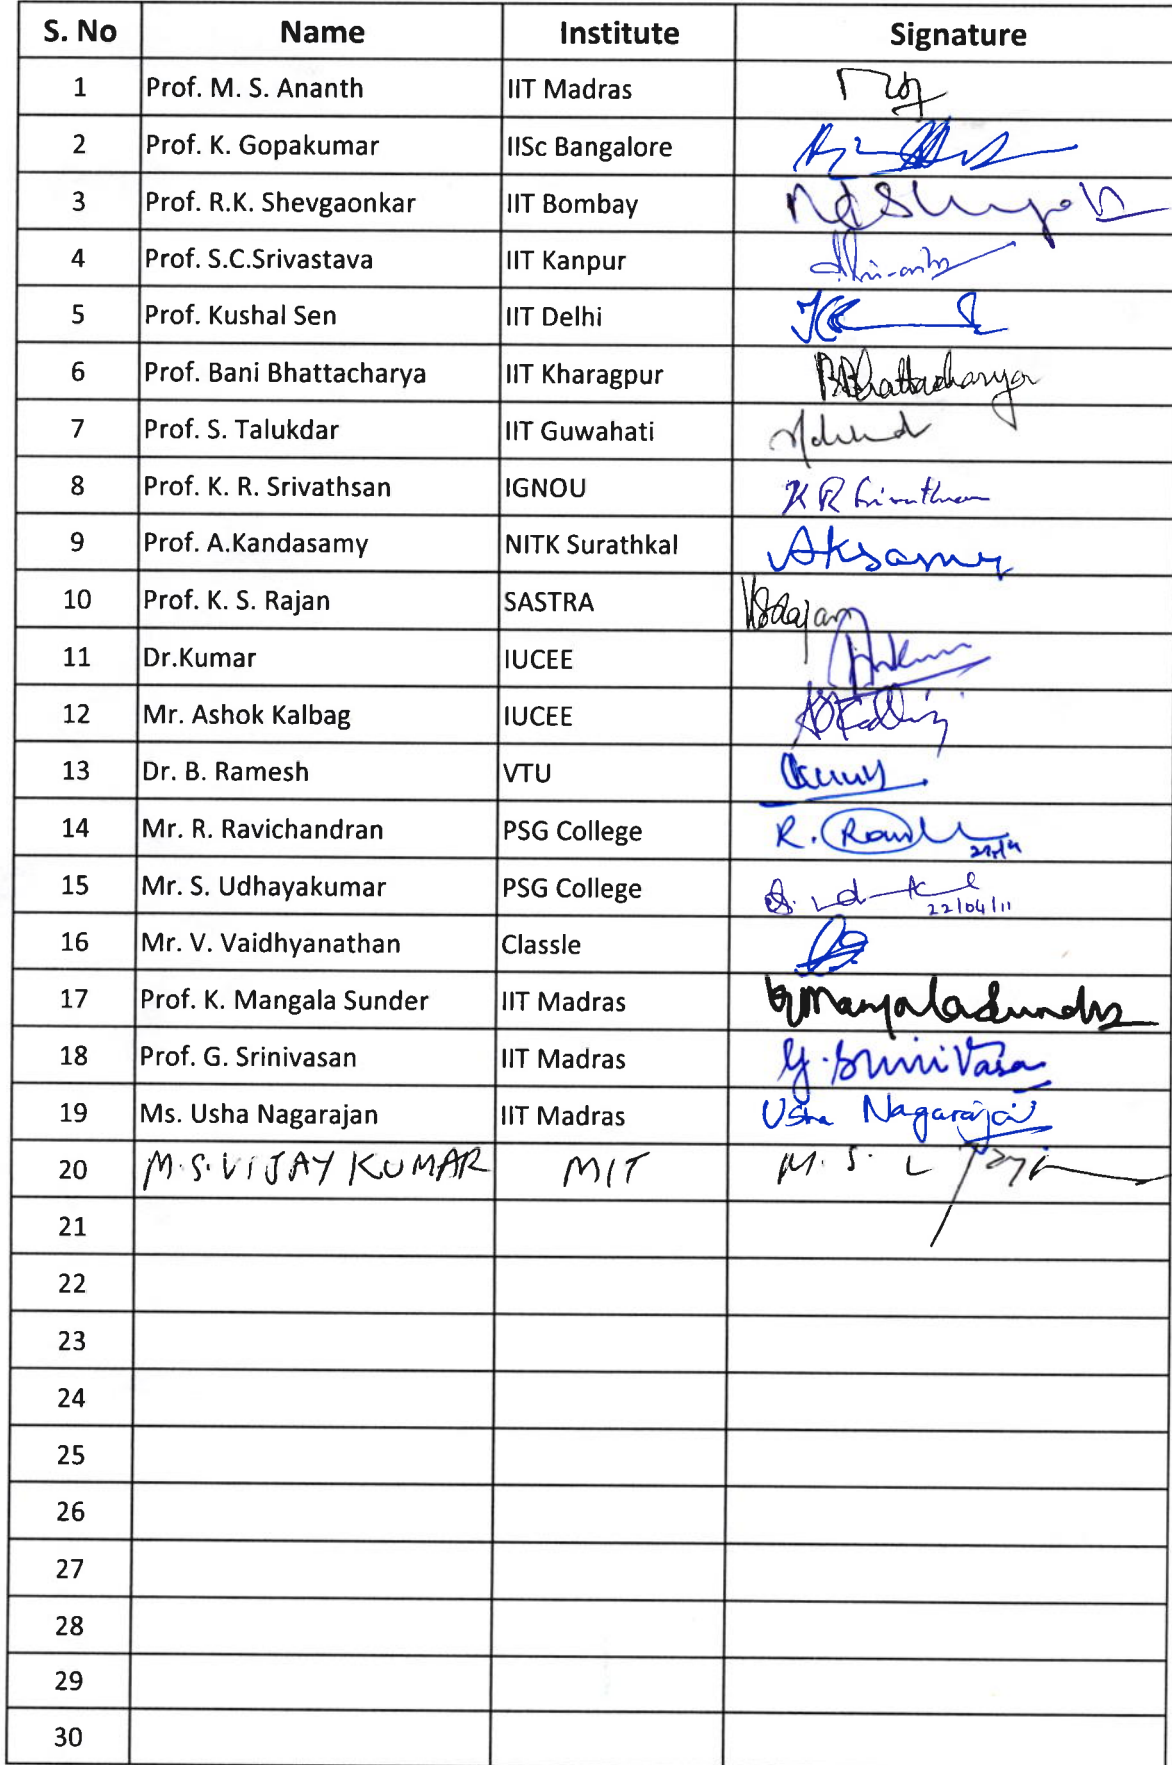 S. No Name Institute Signature
1 Prof. M. S. Ananth IIT Madras
2 Prof. K. Gopakumar IISc Bangalore
3 Prof. R.K. Shevgaonkar IIT Bombay
4 Prof. S.C.Srivastava IIT Kanpur
5 Prof. Kushal Sen IIT Delhi
6 Prof. Bani Bhattacharya IIT Kharagpur BBhattacharya
7 Prof. S. Talukdar IIT Guwahati
8 Prof. K. R. Srivathsan IGNOU K R Srivathsan
9 Prof. A.Kandasamy NITK Surathkal AKsamy
10 Prof. K. S. Rajan SASTRA KSRajan
11 Dr.Kumar IUCEE
12 Mr. Ashok Kalbag IUCEE
13 Dr. B. Ramesh VTU
14 Mr. R. Ravichandran PSG College R.
15 Mr. S. Udhayakumar PSG College
22/04/11
16 Mr. V. Vaidhyanathan Classle
17 Prof. K. Mangala Sunder IIT Madras KMangalaSunder
18 Prof. G. Srinivasan IIT Madras G. Srinivasa
19 Ms. Usha Nagarajan IIT Madras Usha Nagarajan
20 M.S. VIJAY KUMAR MIT M. S.
21
22
23
24
25
26
27
28
29
30